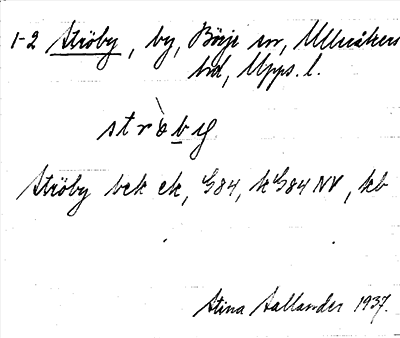 1-2 Ströby, by, Börje sn, Ulleråkers
hd, Upps. l.
strö̀by
Ströby bek ek, G84, kG84 NV, kb
Stina Sallander 1937.